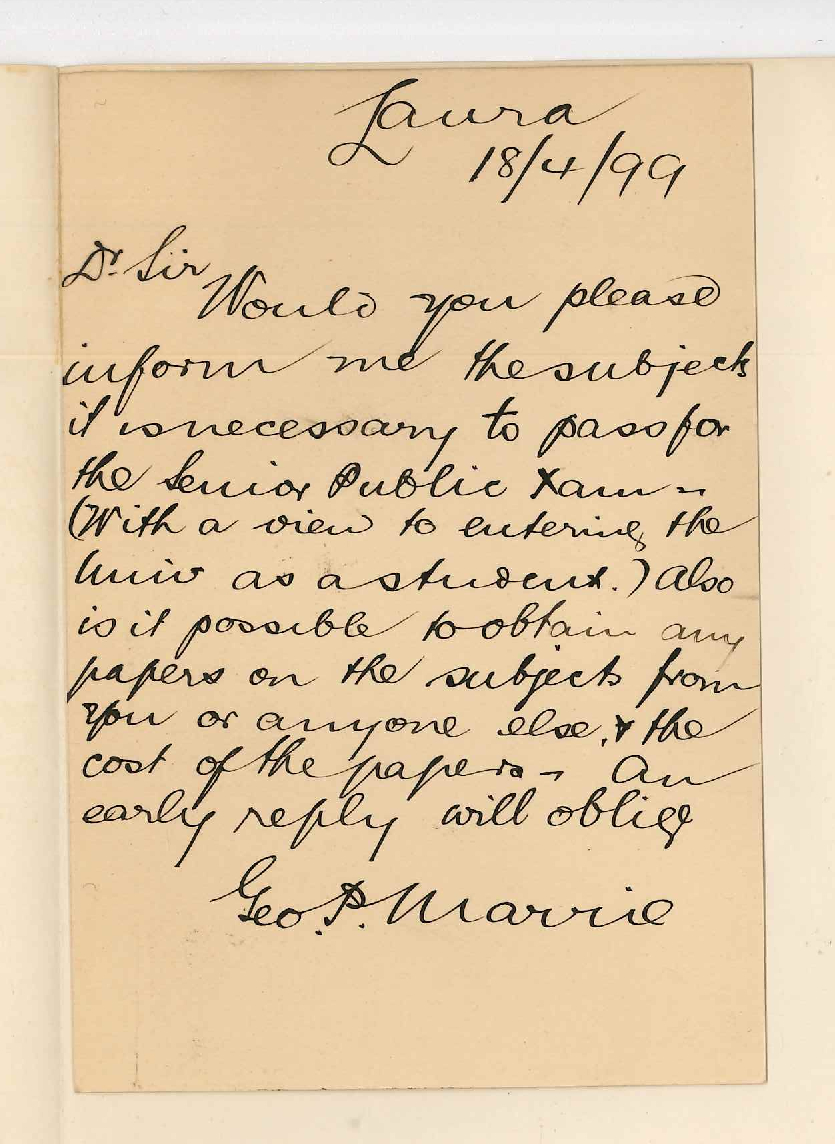 Laura
18/4/99
Dr. Sir
Would you please
inform me the subjects
it is necessary to pass for
the Senior Public Xam -
(With a view to entering the
Univ as a student.) also
is it possible to obtain any
papers on the subjects from
you or anyone else, & the
cost of the papers - An
early reply will oblige
Geo. P.